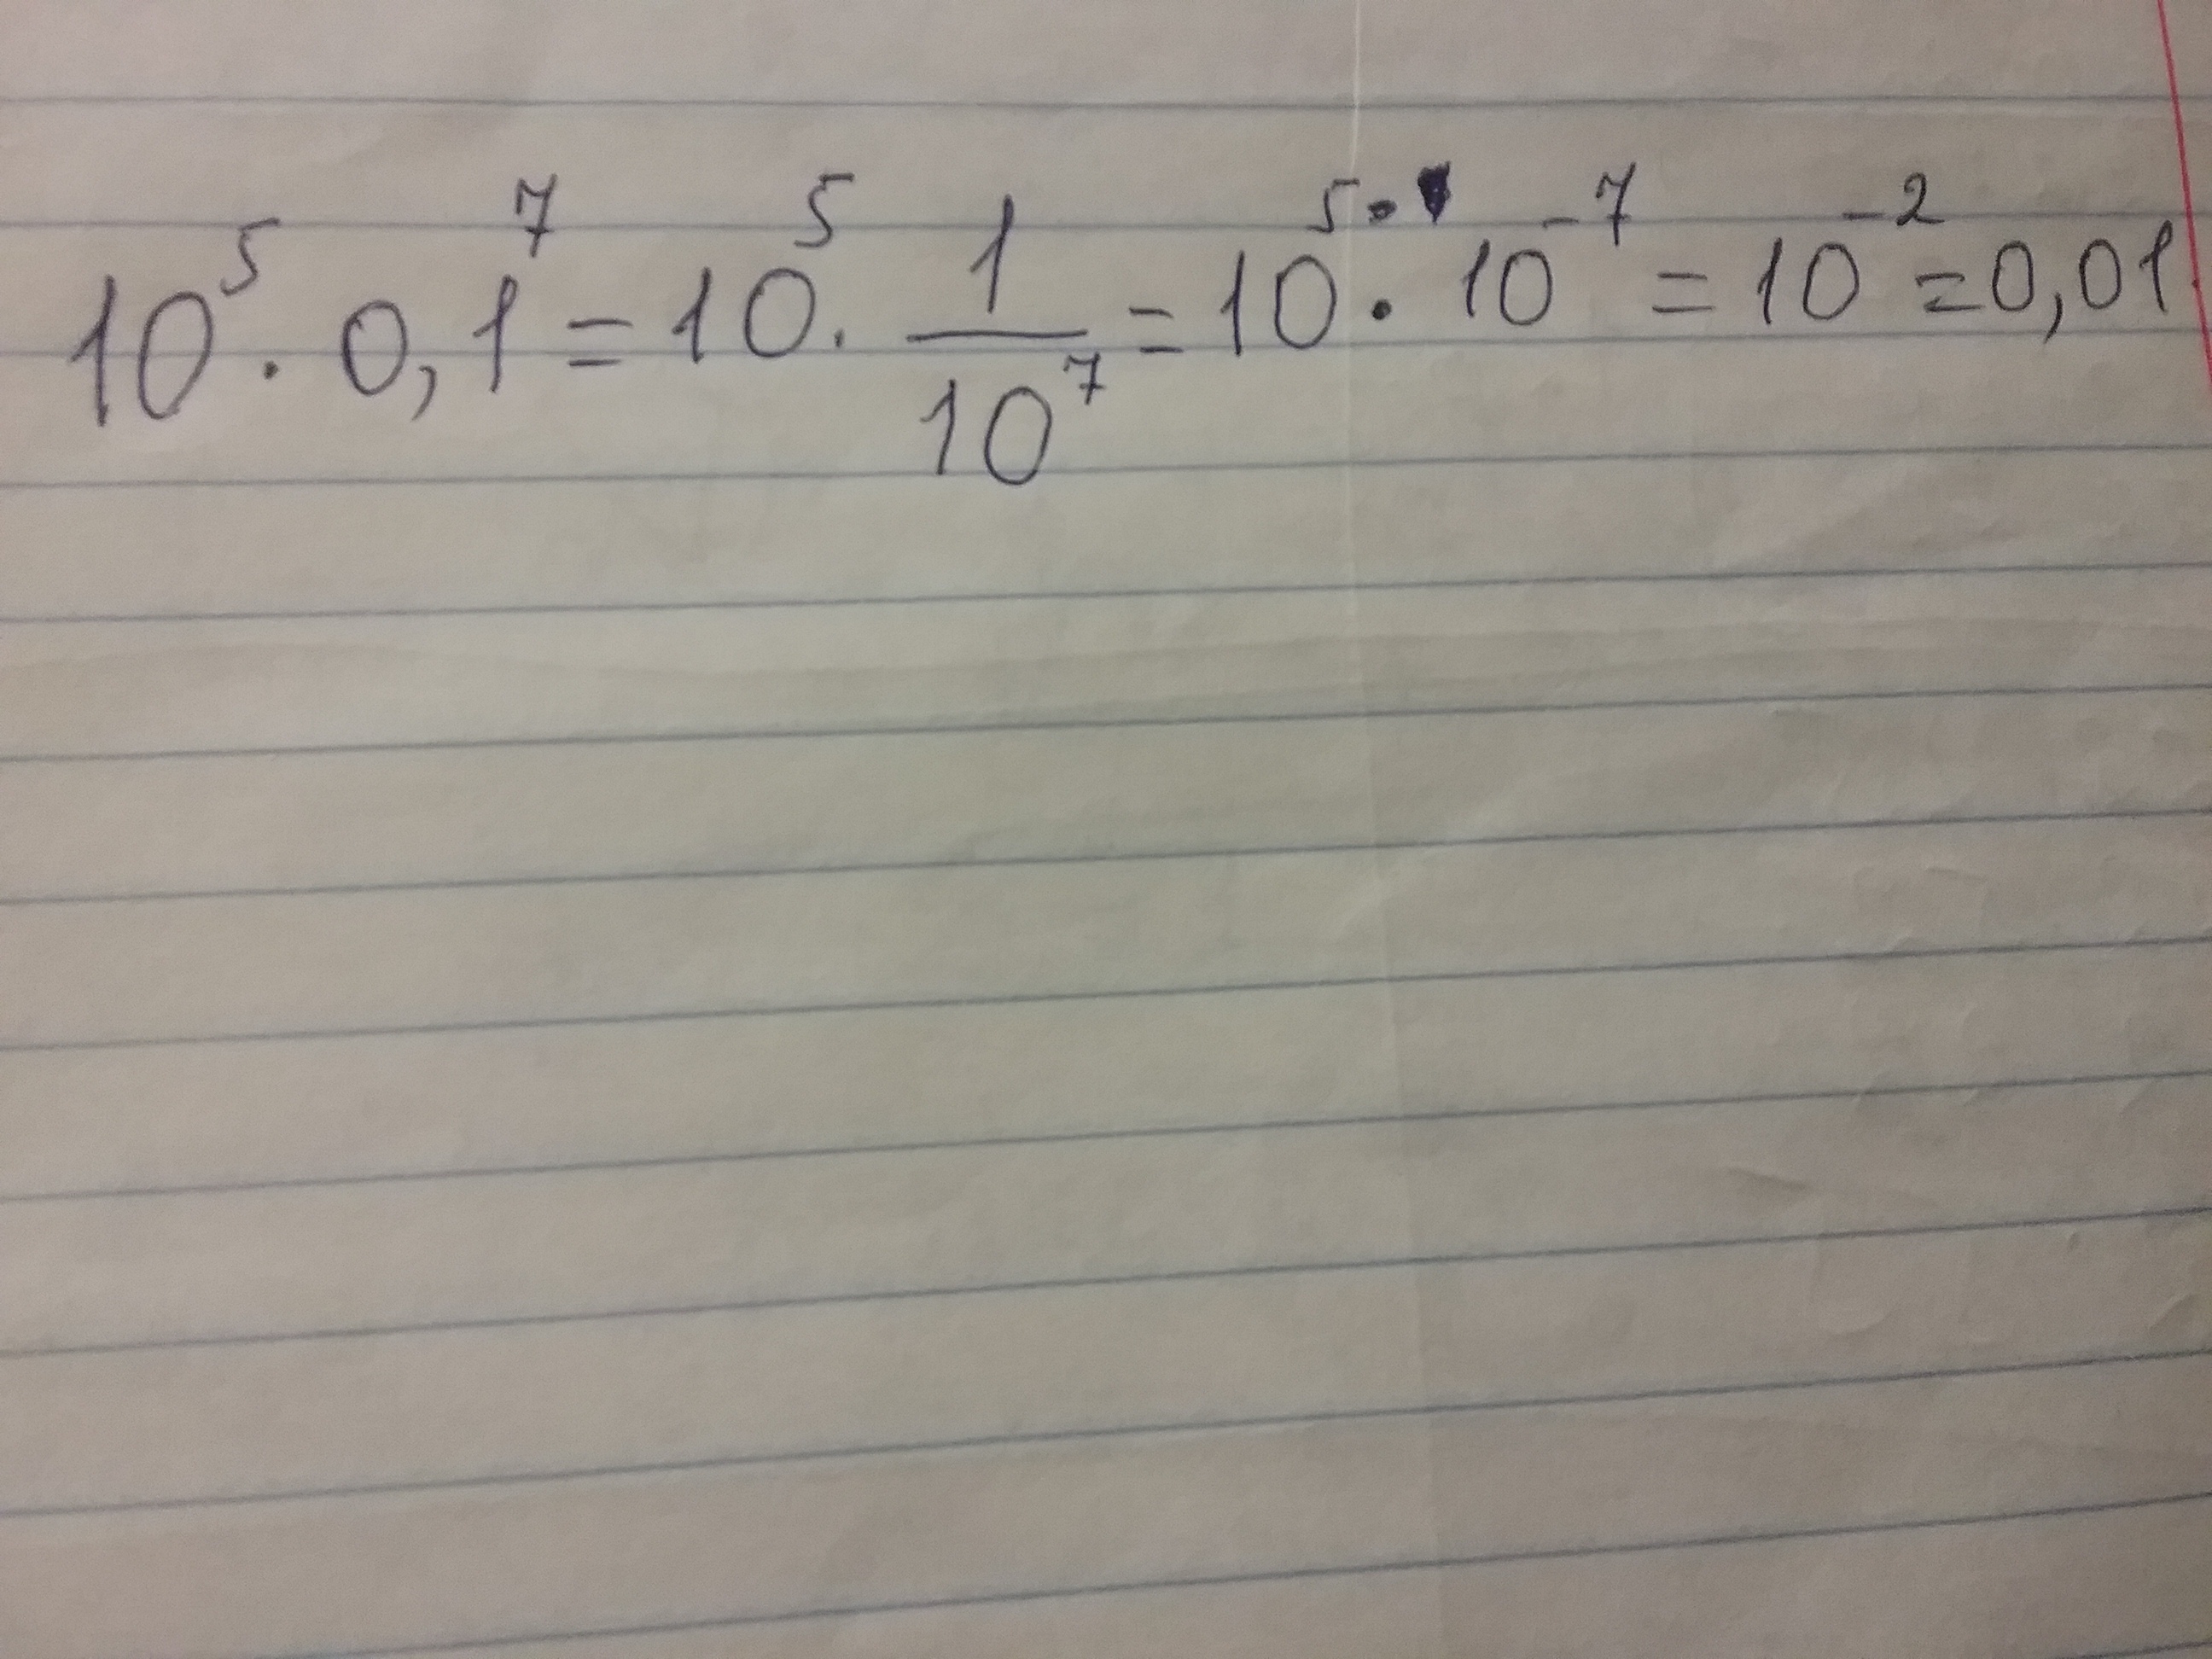 10⁵ · 0,1⁷ = 10⁵ · 1/10⁷ = 10⁵ · 10⁻⁷ = 10⁻² = 0,01